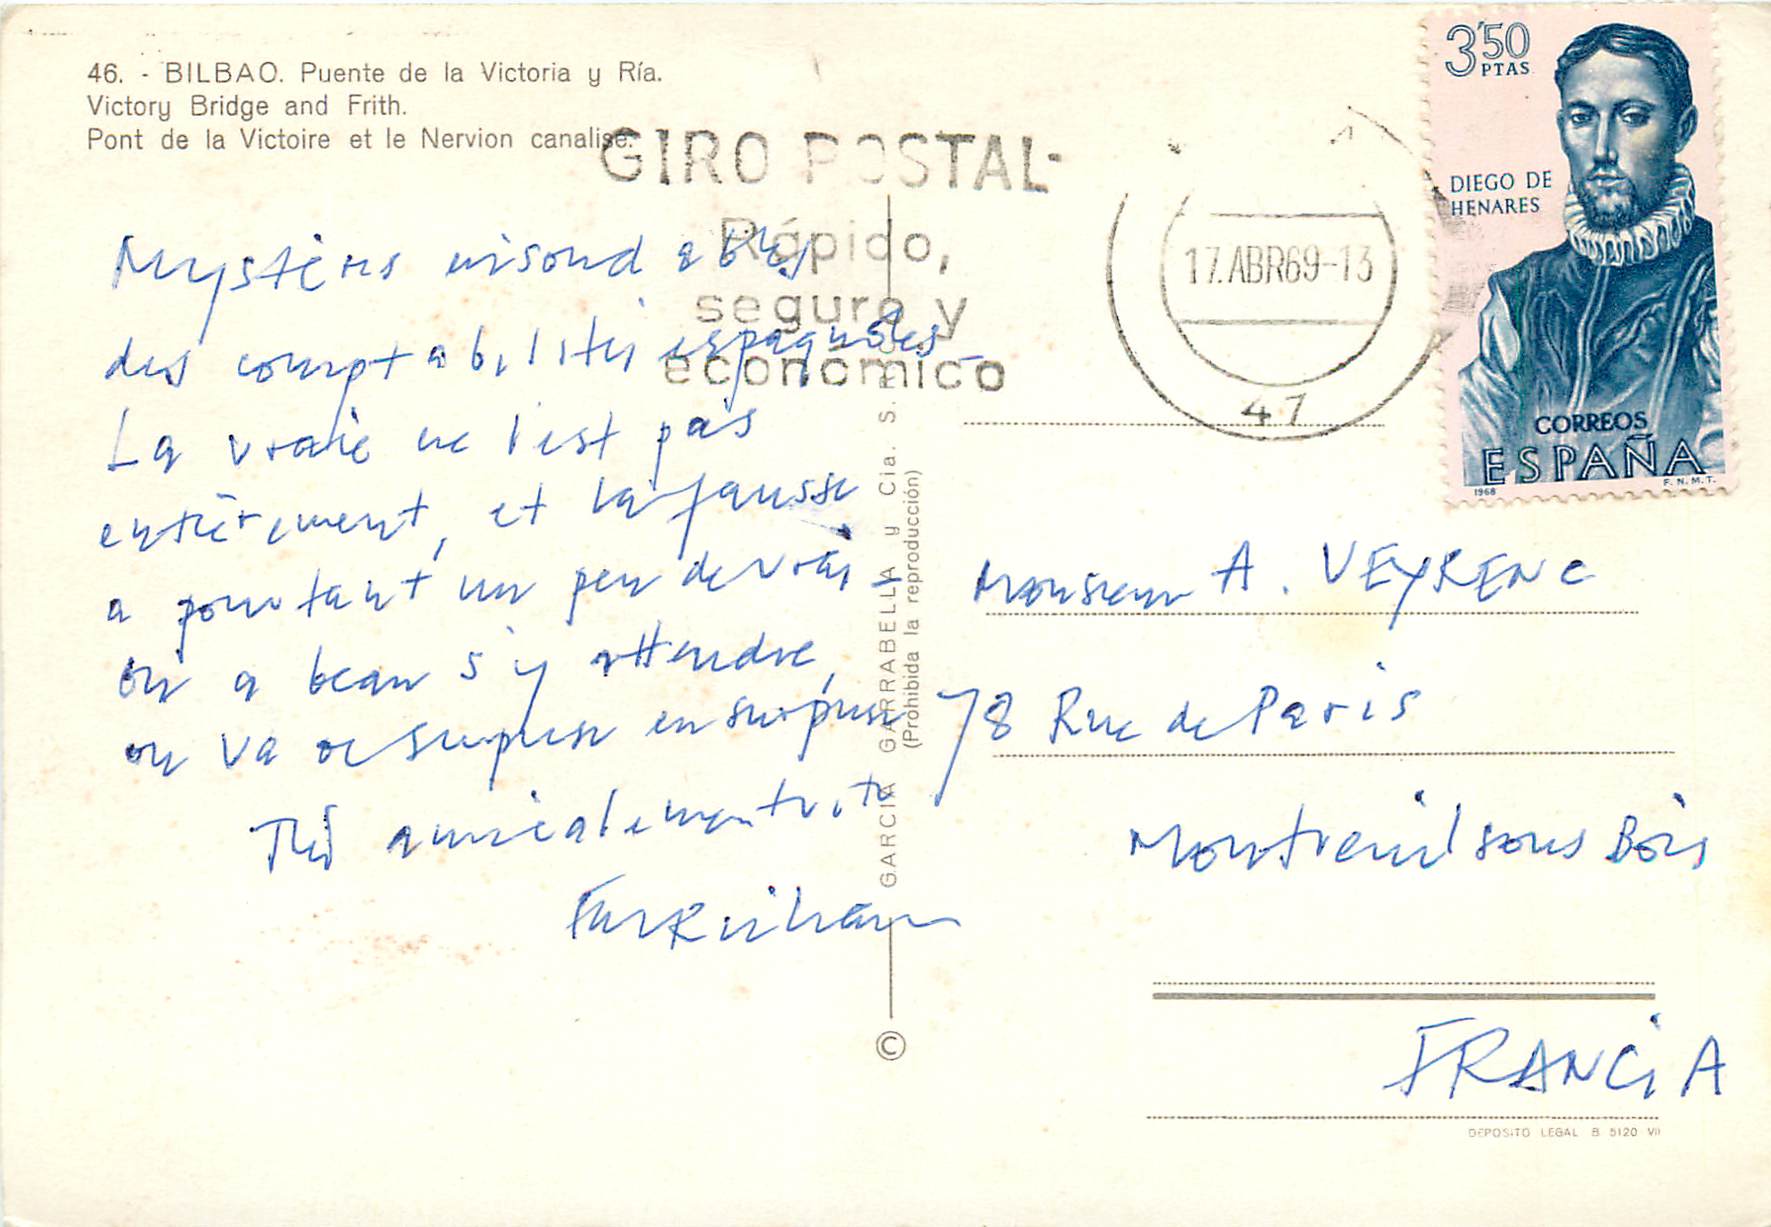 46. - BILBAO. Puente de la Victoria y Ría.
Victory Bridge and Frith.
Pont de la Victoire et le Nervion canalisé.
GIRO POSTAL
Rápido,
seguro y
económico
17.ABR69-13
47
3'50
PTAS
DIEGO DE
HENARES
CORREOS
ESPAÑA
1968
F. N. M. T.
Mystères insondables
des comptabilités espagnoles
La vraie ne l'est pas
entièrement, et la fausse
a pourtant un peu de vrai
On a beau s'y attendre,
on va de surprise en surprise
Très amicalement
GARCIA GARRABELLA y Cia.
(Prohibida la reproducción)
©
Monsieur A. VEYRENC
78 Rue de Paris
Montreuil sous Bois
FRANCIA
DEPOSITO LEGAL B 5120 VII